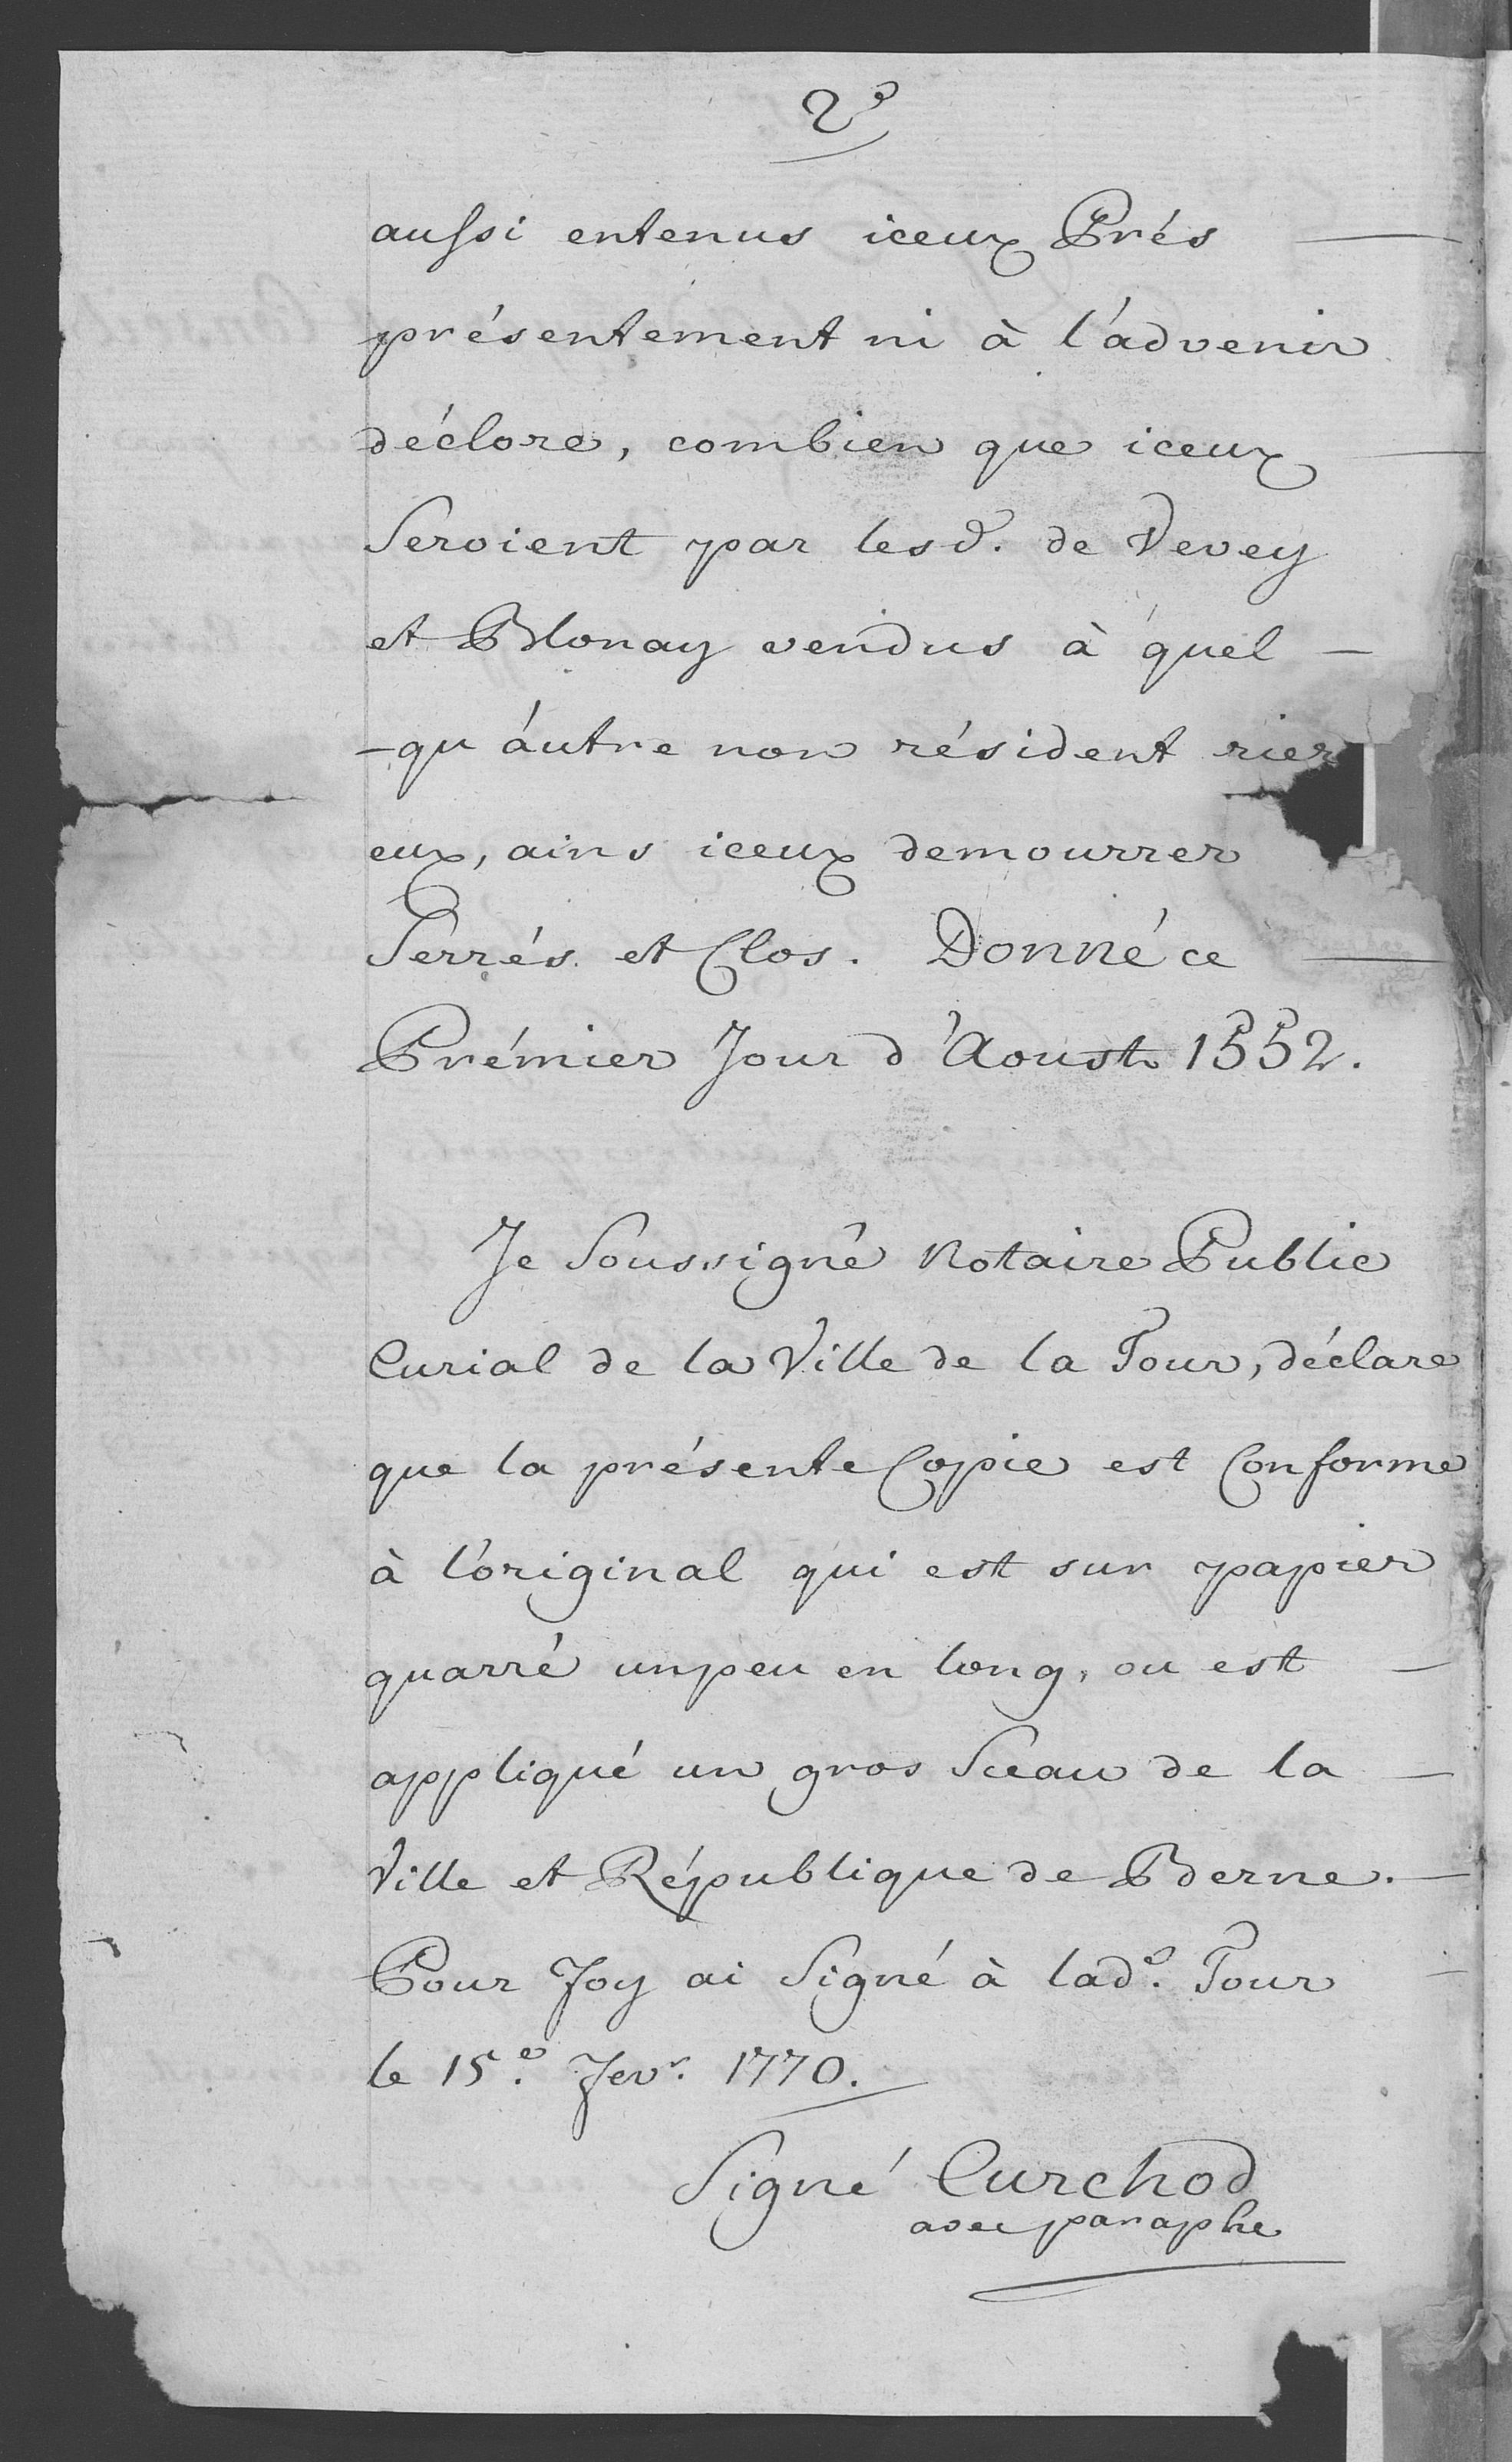 2.e
aussi entenus iceux Prés —
présentement ni à l'advenir
déclore, combien que iceux —
Seroient par lesd. de Vevey
et Blonay vendus à quel –
-qu'autre non résident rier
eux, ains iceux demourrer
Serrés et Clos. Donné ce —
Prémier Jour d'Aoust 1552.
Je Soussigné Notaire Public
Curial de la Ville de la Tour, déclare
que la présente Copie est Conforme
à l'original qui est sur papier
quarré un peu en long, ou est –
appliqué un gros Sceau de la –
Ville et République de Berne. –
Pour foy ai Signé à lad.e Tour –
le 15.e Fevr. 1770.
Signé Curchod
avec paraphe